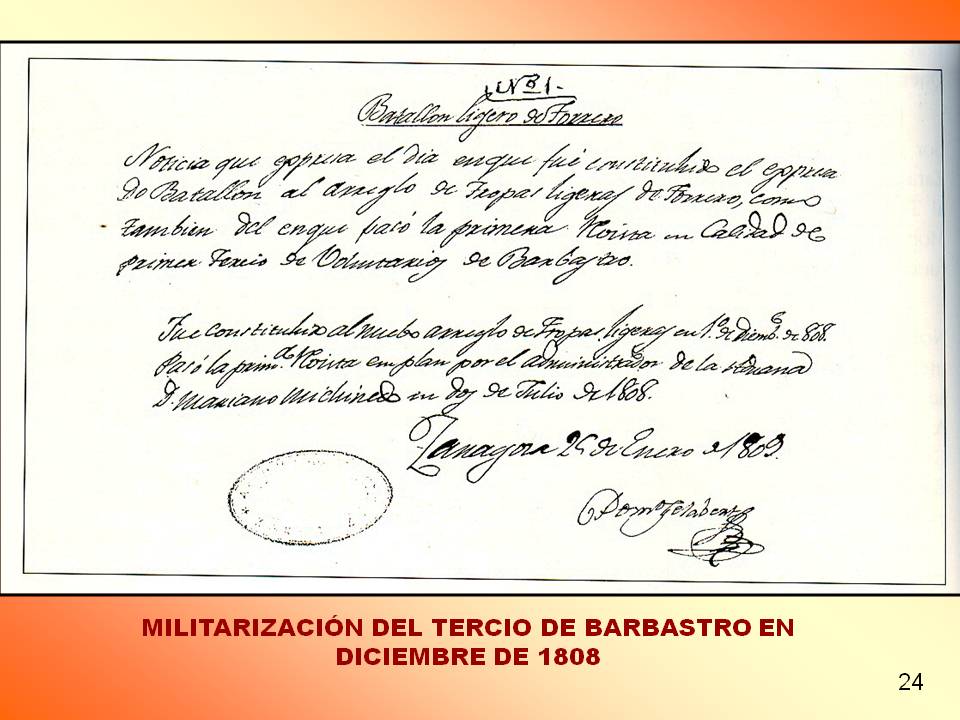 Nº 1.
Batallon ligero de Torrero
Noticia que expresa el dia en que fué constituhido el expresa
do Batallon al arreglo de Tropas ligeras de Torrero, como
tambien del en que pasó la primera Revista en Calidad de
primer Tercio de Voluntarios de Barbastro.
Fue constituhido al nuebo arreglo de Tropas ligeras en 1º de Diemb.e de 808.
Pasó la prim.ra Revista en plan por el administrador de la Aduana
D. Mariano en dos de Julio de 1808.
Zaragoza 25 de Enero de 1809.
MILITARIZACIÓN DEL TERCIO DE BARBASTRO EN
DICIEMBRE DE 1808
24